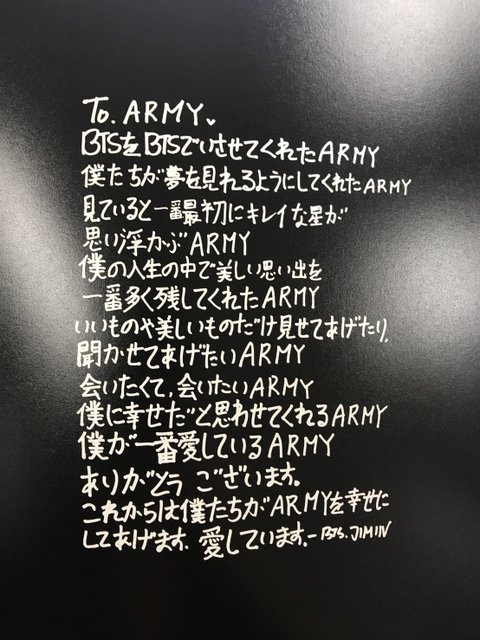 To. ARMY♥
BTSをBTSでいさせてくれたARMY
僕たちが夢を見れるようにしてくれたARMY
見ていると一番最初にキレイな星が
思い浮かぶARMY
僕の人生の中で美しい思い出を
一番多く残してくれたARMY
いいものや美しいものだけ見せてあげたり,
聞かせてあげたいARMY
会いたくて,会いたいARMY
僕に幸せだと思わせてくれるARMY
僕が一番愛しているARMY
ありがとうございます。
これからは僕たちがARMYを幸せに
してあげます. 愛しています.-BTS. JIMIN